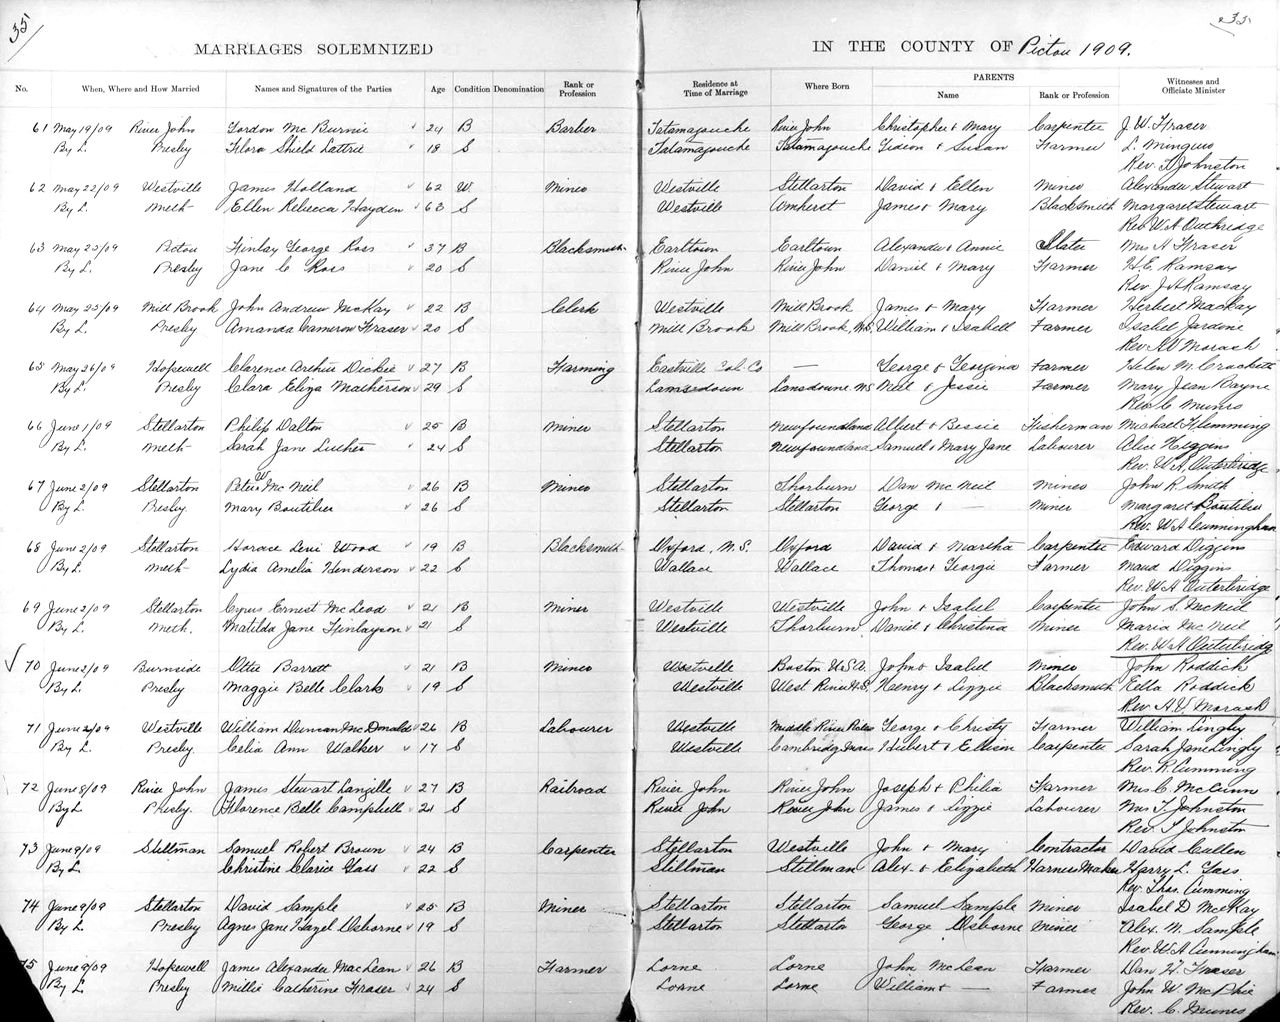 35
35
MARRIAGES SOLEMNIZED IN THE COUNTY OF Pictou 1909.
No. When, Where and How Married Names and Signatures of the Parties Age Condition Denomination Rank or Profession Residence at Time of Marriage Where Born PARENTS Name Rank or Profession Witnesses and Officiate Minister
61 May 19/09 River John Gordon Mc Burnie 24 B Barber Tatamagouche River John Christopher + Mary Carpenter J. W. Fraser
By L. Presby Flora Shield Lattrie 18 S Tatamagouche Tatamagouche Gideon + Susan Farmer L. Minguo
Rev. T. Johnston
62 May 22/09 Westville James Holland 62 W Miner Westville Stellarton David + Ellen Miner Alexander Stewart
By L. Meth Ellen Rebecca Hayden 63 S Westville Amherst James + Mary Blacksmith Margaret Stewart
Rev W A Outhridge
63 May 25/09 Pictou Finlay George Ross 37 B Blacksmith Earltown Earltown Alexander + Annie Slater Mrs A Fraser
By L. Presby Jane C Ross 20 S River John River John Daniel + Mary Farmer H. E. Ramsay
Rev J A Ramsay
64 May 25/09 Mill Brook John Andrew McKay 22 B Clerk Westville Mill Brook James + Mary Farmer Herbert MacKay
By L. Presby Amanda Cameron Fraser 20 S Mill Brook Mill Brook, N.S. William + Isabell Farmer Isabel Jardine
Rev. A V Morash
65 May 26/09 Hopewell Clarence Arthur Dickie 27 B Farming Eastville Col. Co — George + Georgina Farmer Helen M. Crockett
By L. Presby Clara Eliza Matherson 29 S Lansdown Lansdowne NS Neil + Jessie Farmer Mary Jean Rayne
Rev. C. Munro
66 June 1/09 Stellarton Philip Dalton 25 B Miner Stellarton Newfoundland Albert + Bessie Fisherman Michael Flemming
By L. Meth Sarah Jane Luther 24 S Stellarton Newfoundland Samuel + Mary Jane Labourer Alice Higgins
Rev. W. A. Outerbridge
67 June 2/09 Stellarton Peter W Mc Neil 26 B Miner Stellarton Thorburn Dan Mc Neil Miner John R. Smith
By L. Presby. Mary Boutilier 26 S Stellarton Stellarton George + — Miner Margaret Boutilier
Rev. W A Cunningham
68 June 2/09 Stellarton Horace Levi Wood 19 B Blacksmith Oxford, N.S. Oxford David + Martha Carpenter Edward Diggins
By L. Meth Lydia Amelia Henderson 22 S Wallace Wallace Thomas + Georgie Farmer Maud Diggins
Rev. W A Outerbridge
69 June 2/09 Stellarton Cyrus Ernest McLeod 21 B Miner Westville Westville John + Isabel Carpenter John S. McNeil
By L. Meth. Matilda Jane Finlayson 21 S Westville Thorburn Daniel + Christina Miner Maria McNeil
Rev. W A Outerbridge
70 June 2/09 Burnside Ottie Barrett 21 B Miner Westville Boston U.S.A. John + Isabel Miner John Roddick
By L. Presby Maggie Belle Clark 19 S Westville West River N.S. Henry + Lizzie Blacksmith Ella Roddick
Rev A. V Morash
71 June 2/09 Westville William Duncan Mc Donald 26 B Labourer Westville Middle River Pictou George + Christy Farmer William Lingly
By L. Presby. Celia Ann Walker 17 S Westville Cambridge Mass Hubert + Ellison Carpenter Sarah Jane Lingly
Rev. R. Cumming
72 June 8/09 River John James Stewart Langille 27 B Railroad River John River John Joseph + Philia Farmer Mrs C. McCunn
By L Presby. Florence Belle Campbell 21 S River John River John James + Lizzie Labourer Mrs T. Johnston
Rev. T Johnston
73 June 9/09 Stillman Samuel Robert Brown 24 B Carpenter Stellarton Westville John + Mary Contractor David Cullen
By L. Christine Clarice Gass 22 S Stillman Stillman Alex. + Elizabeth Harness Maker Harry L. Gass
Rev. Thos. Cumming
74 June 9/09 Stellarton David Sample 25 B Miner Stellarton Stellarton Samuel Sample Miner Isabel D McKay
By L. Presby Agnes Jane Hazel Osborne 19 S Stellarton Stellarton George Osborne Miner Alex. W. Sample
Rev. W. A Cunningham
75 June 9/09 Hopewell James Alexander MacLean 26 B Farmer Lorne Lorne John McLean Farmer Dan H. Fraser
By L. Presby Millie Catherine Fraser 24 S Lorne Lorne William + — Farmer John W. McPhie
Rev. C. Munro